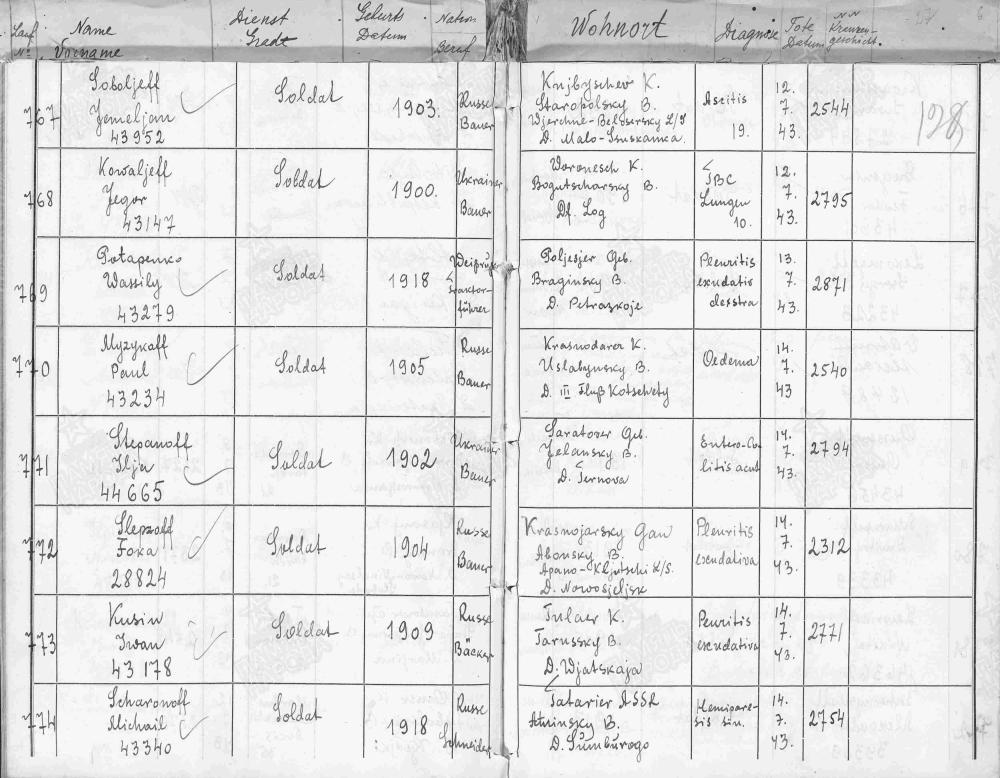 Lauf N° Name Vorname Dienst Gradt Geburts Datum Nation Beruf Wohnort Diagnose Tote Datum NN Kranzen- geschicht.
767 Soboljeff Jemeljan 43952 Soldat 1903. Russe Bauer Kujbyschew K. Staropolsky B. Wjerchne-Belosersky D. Malo- Aszitis 19. 12. 7. 43. 2544 128
768 Kowaljeff Jegor 43147 Soldat 1900. Ukrainer Bauer Woronesch K. Bogutscharsky B. Df. Log TBC Lungen 10. 12. 7. 43. 2795
769 Potapenko Wassily 43279 Soldat 1918 Traktor- führer Poljesjer Geb. Braginsky B. D. Petrazkoje Pleuritis exudativ dexstra 13. 7. 43. 2871
770 Myzykaff Paul 43234 Soldat 1905 Russe Bauer Krasnodarer K. Uslabynsky B. D. III Fluß Kotschety Oedema 14. 7. 43 2540
771 Stepanoff Ilja 44665 Soldat 1902 Ukrainer Bauer Saratover Geb. Jelansky B. D. Ternova Entero-Co- litis acut 14. 7. 43. 2794
772 Slepzoff Foka 28824 Soldat 1904 Russe Bauer Krasnojarsky Gau Abonsky B. Apano-Kljutschi L/S. D. Nowosjeljsk Pleuritis exudativa 14. 7. 43. 2312
773 Kusin Iwan 43178 Soldat 1909 Russe Bäcker Tulaer K. Tarussky B. D. Wjatskaja Peuritis exudativa 14. 7. 43. 2771
774 Scharonoff Michail 43340 Soldat 1918 Russe Schneider Tatarier ASSR Atninsky B. D. Sumburogo Hemipare- sis sin. 14. 7. 43. 2754